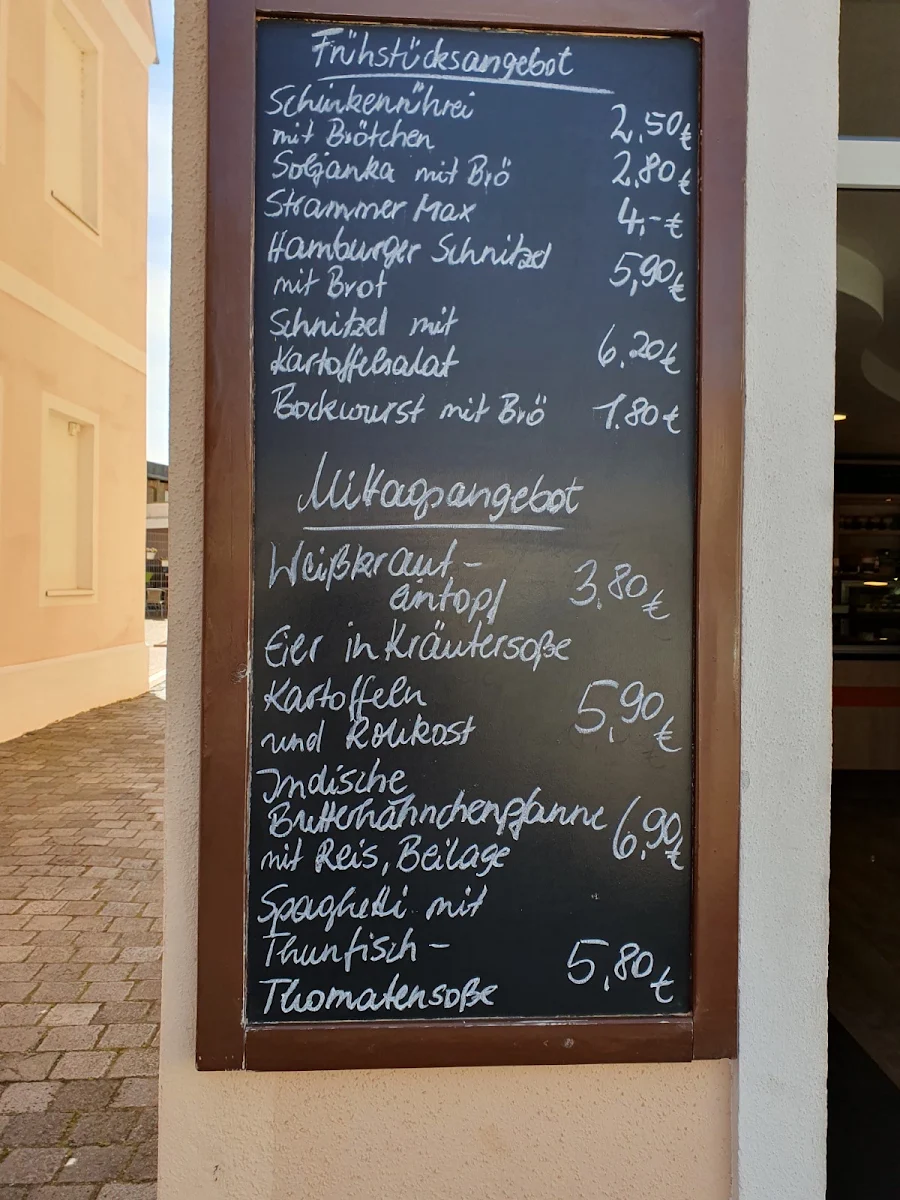 Frühstücksangebot
Schinkenrührei
mit Brötchen 2,50€
Soljanka mit Brö 2,80€
Strammer Max 4,-€
Hamburger Schnitzel
mit Brot 5,90€
Schnitzel mit
Kartoffelsalat 6.20€
Bockwurst mit Brö 1.80€
Mittagsangebot
Weißkraut-
antopf 3,80€
Eier in Kräutersoße
Kartoffeln
und Rohkost 5,90€
Indische
Butterhähnchenpfanne 6,90€
mit Reis, Beilage
Spaghetti mit
Thunfisch-
Thomatensoße 5,80€